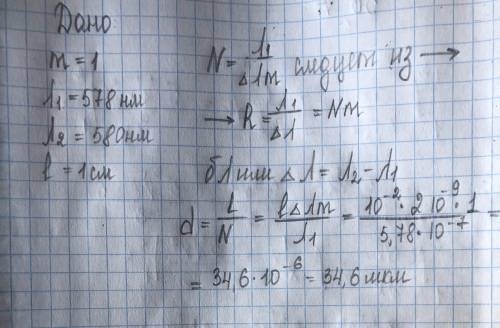 Дано
m = 1
λ1 = 578 нм
λ2 = 580 нм
l = 1 см
N = λ1 / Δλm следует из →
→ R = λ1 / Δλ = Nm
Δλ = λ2 - λ1
d = l / N = lΔλm / λ1 = 10⁻² · 2 · 10⁻⁹ · 1 / 5,78 · 10⁻⁷ =
= 34,6 · 10⁻⁶ = 34,6 мкм